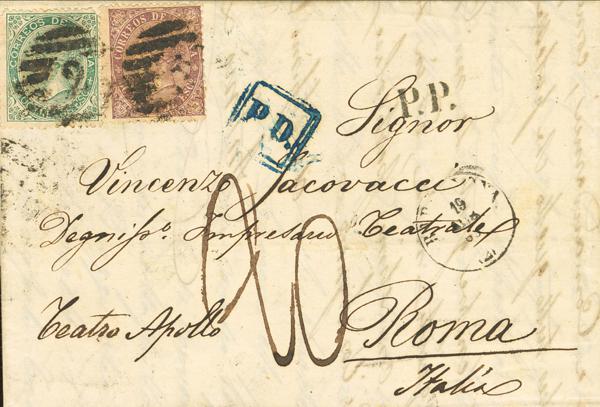 CORREOS DE
CORREOS DE
2
P.D.
P.P.
Signor
Vincenzo Jacovacci
19
Degniss.º Impresario Teatrale
Teatro Apollo
Roma
Italia